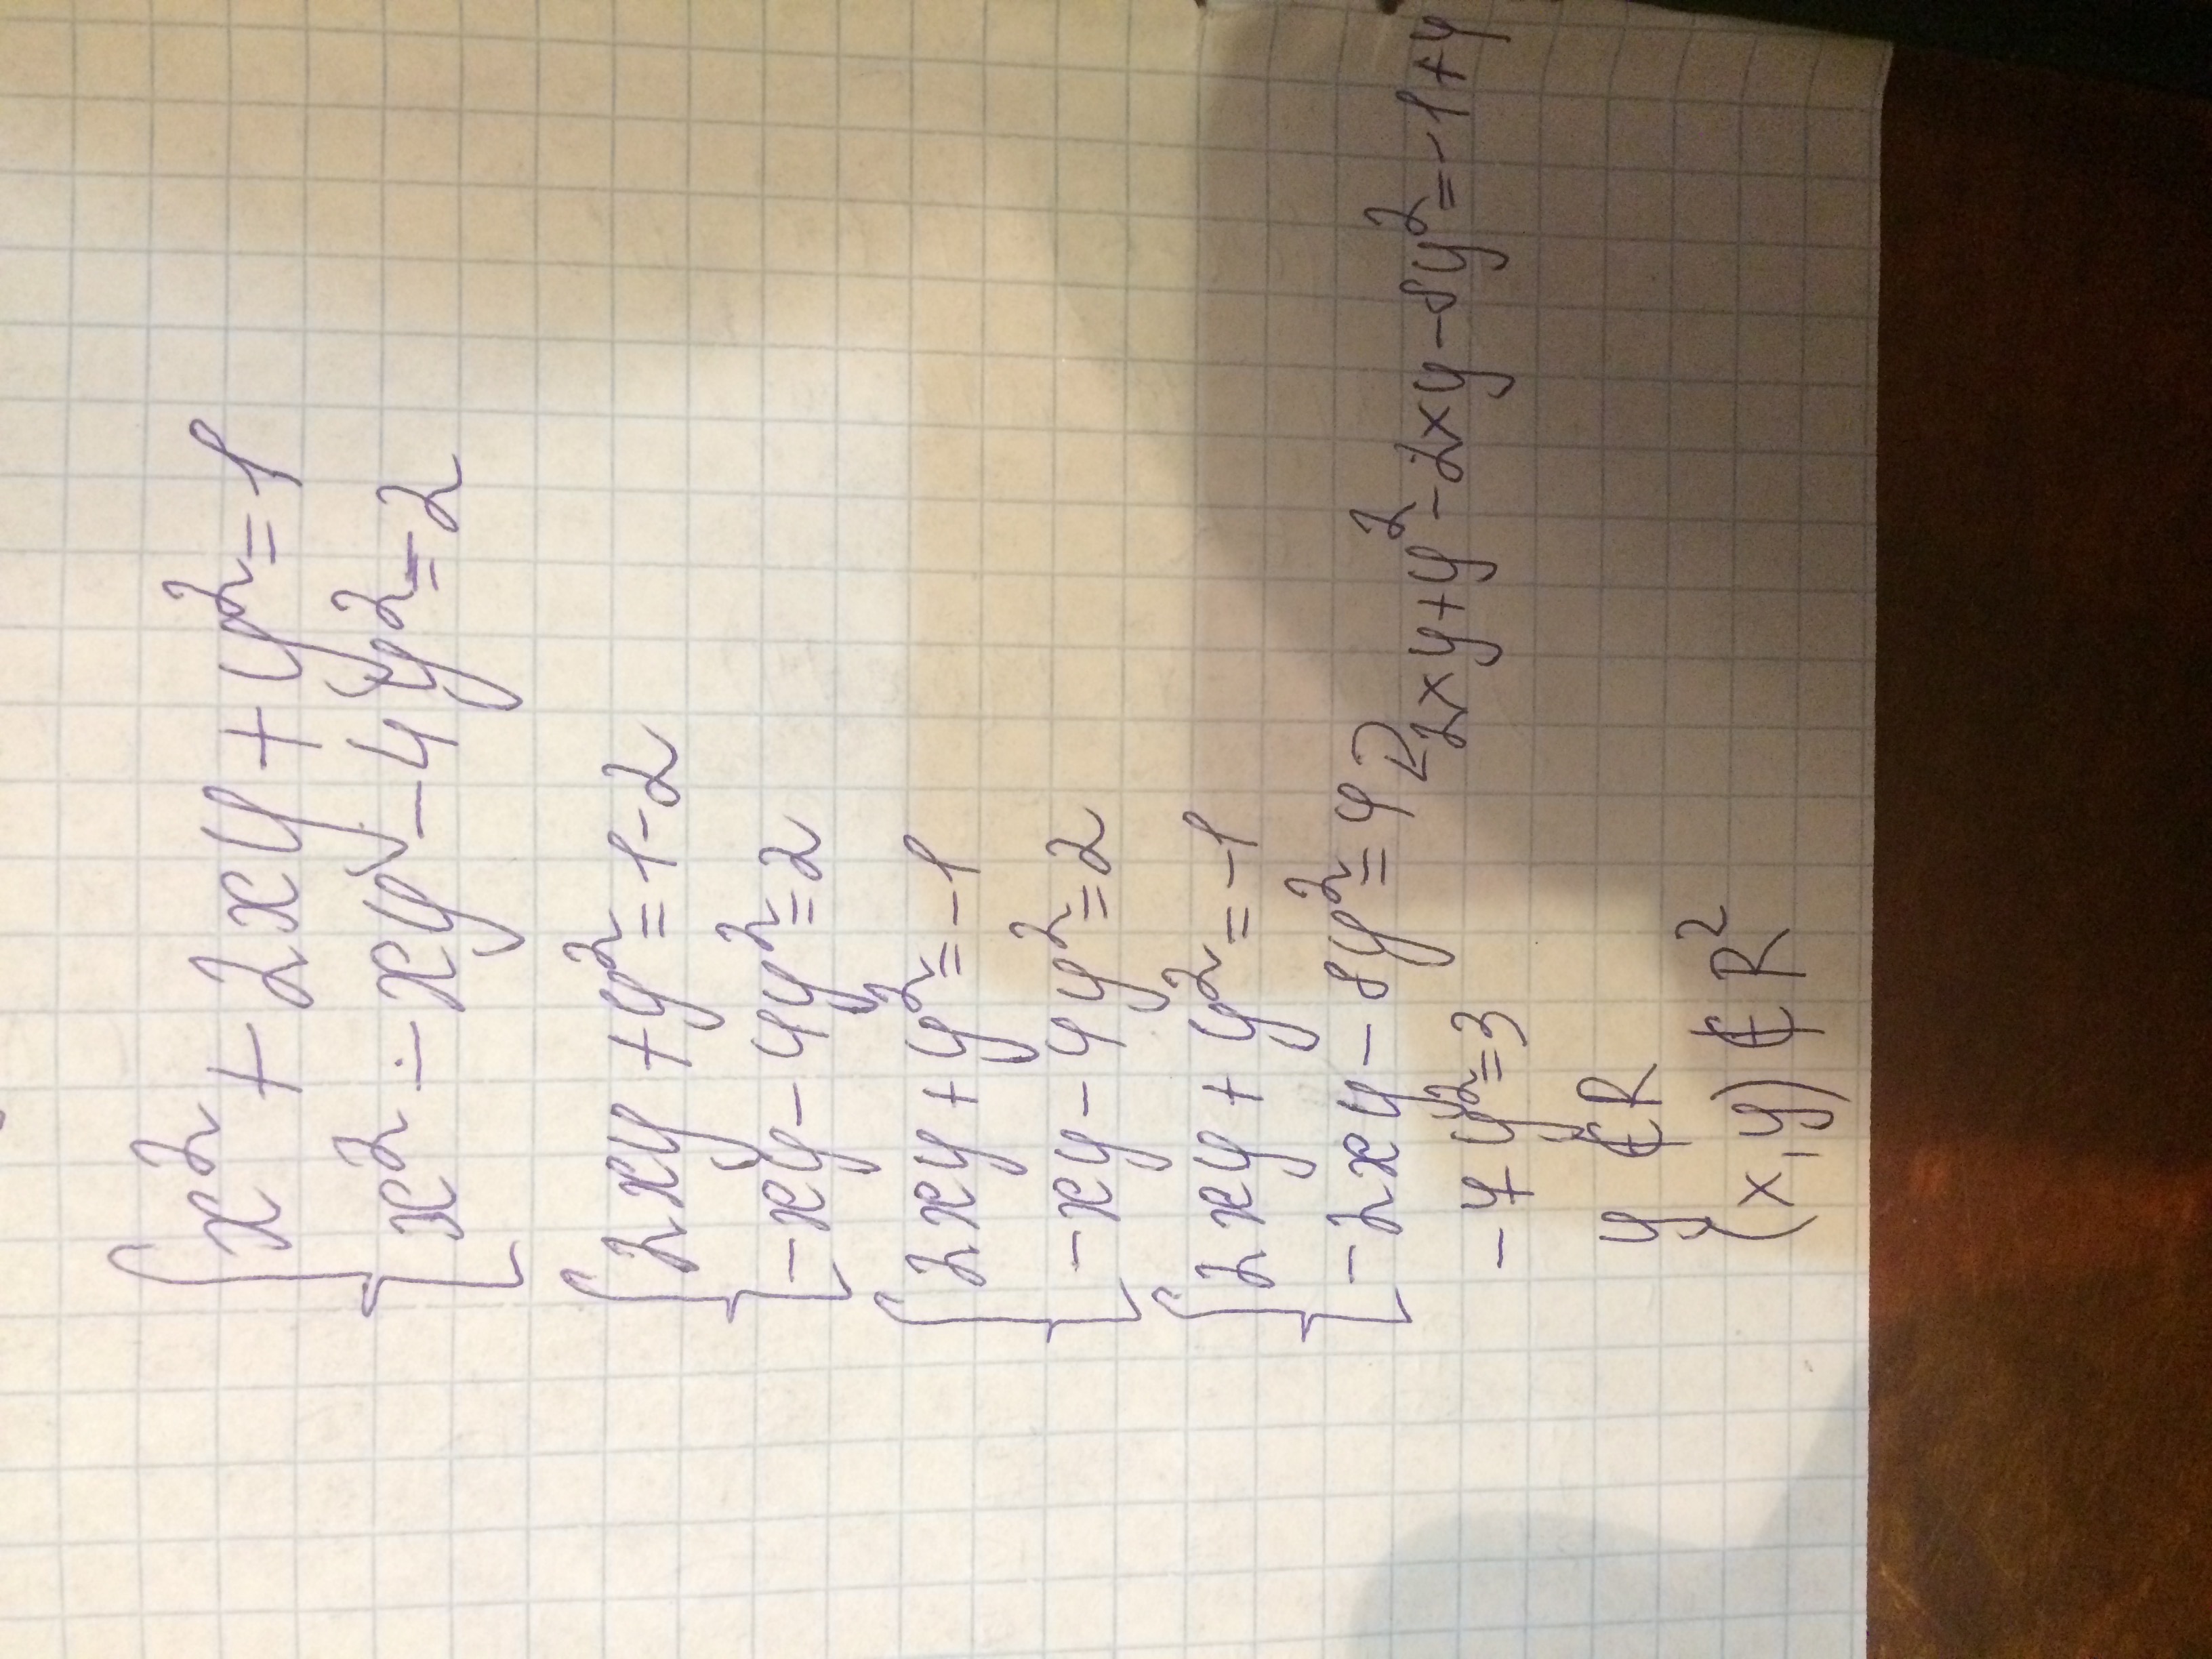 x² + 2xy + y² = 1
x² - xy - 4y² = 2
2xy + y² = 1-2
-xy - 4y² = 2
2xy + y² = -1
-xy - 4y² = 2
2xy + y² = -1
-2xy - 8y² = 4
2xy+y²-2xy-8y²=-1+4
-7y²=3
y ∉ R
(x,y) ∉ R²